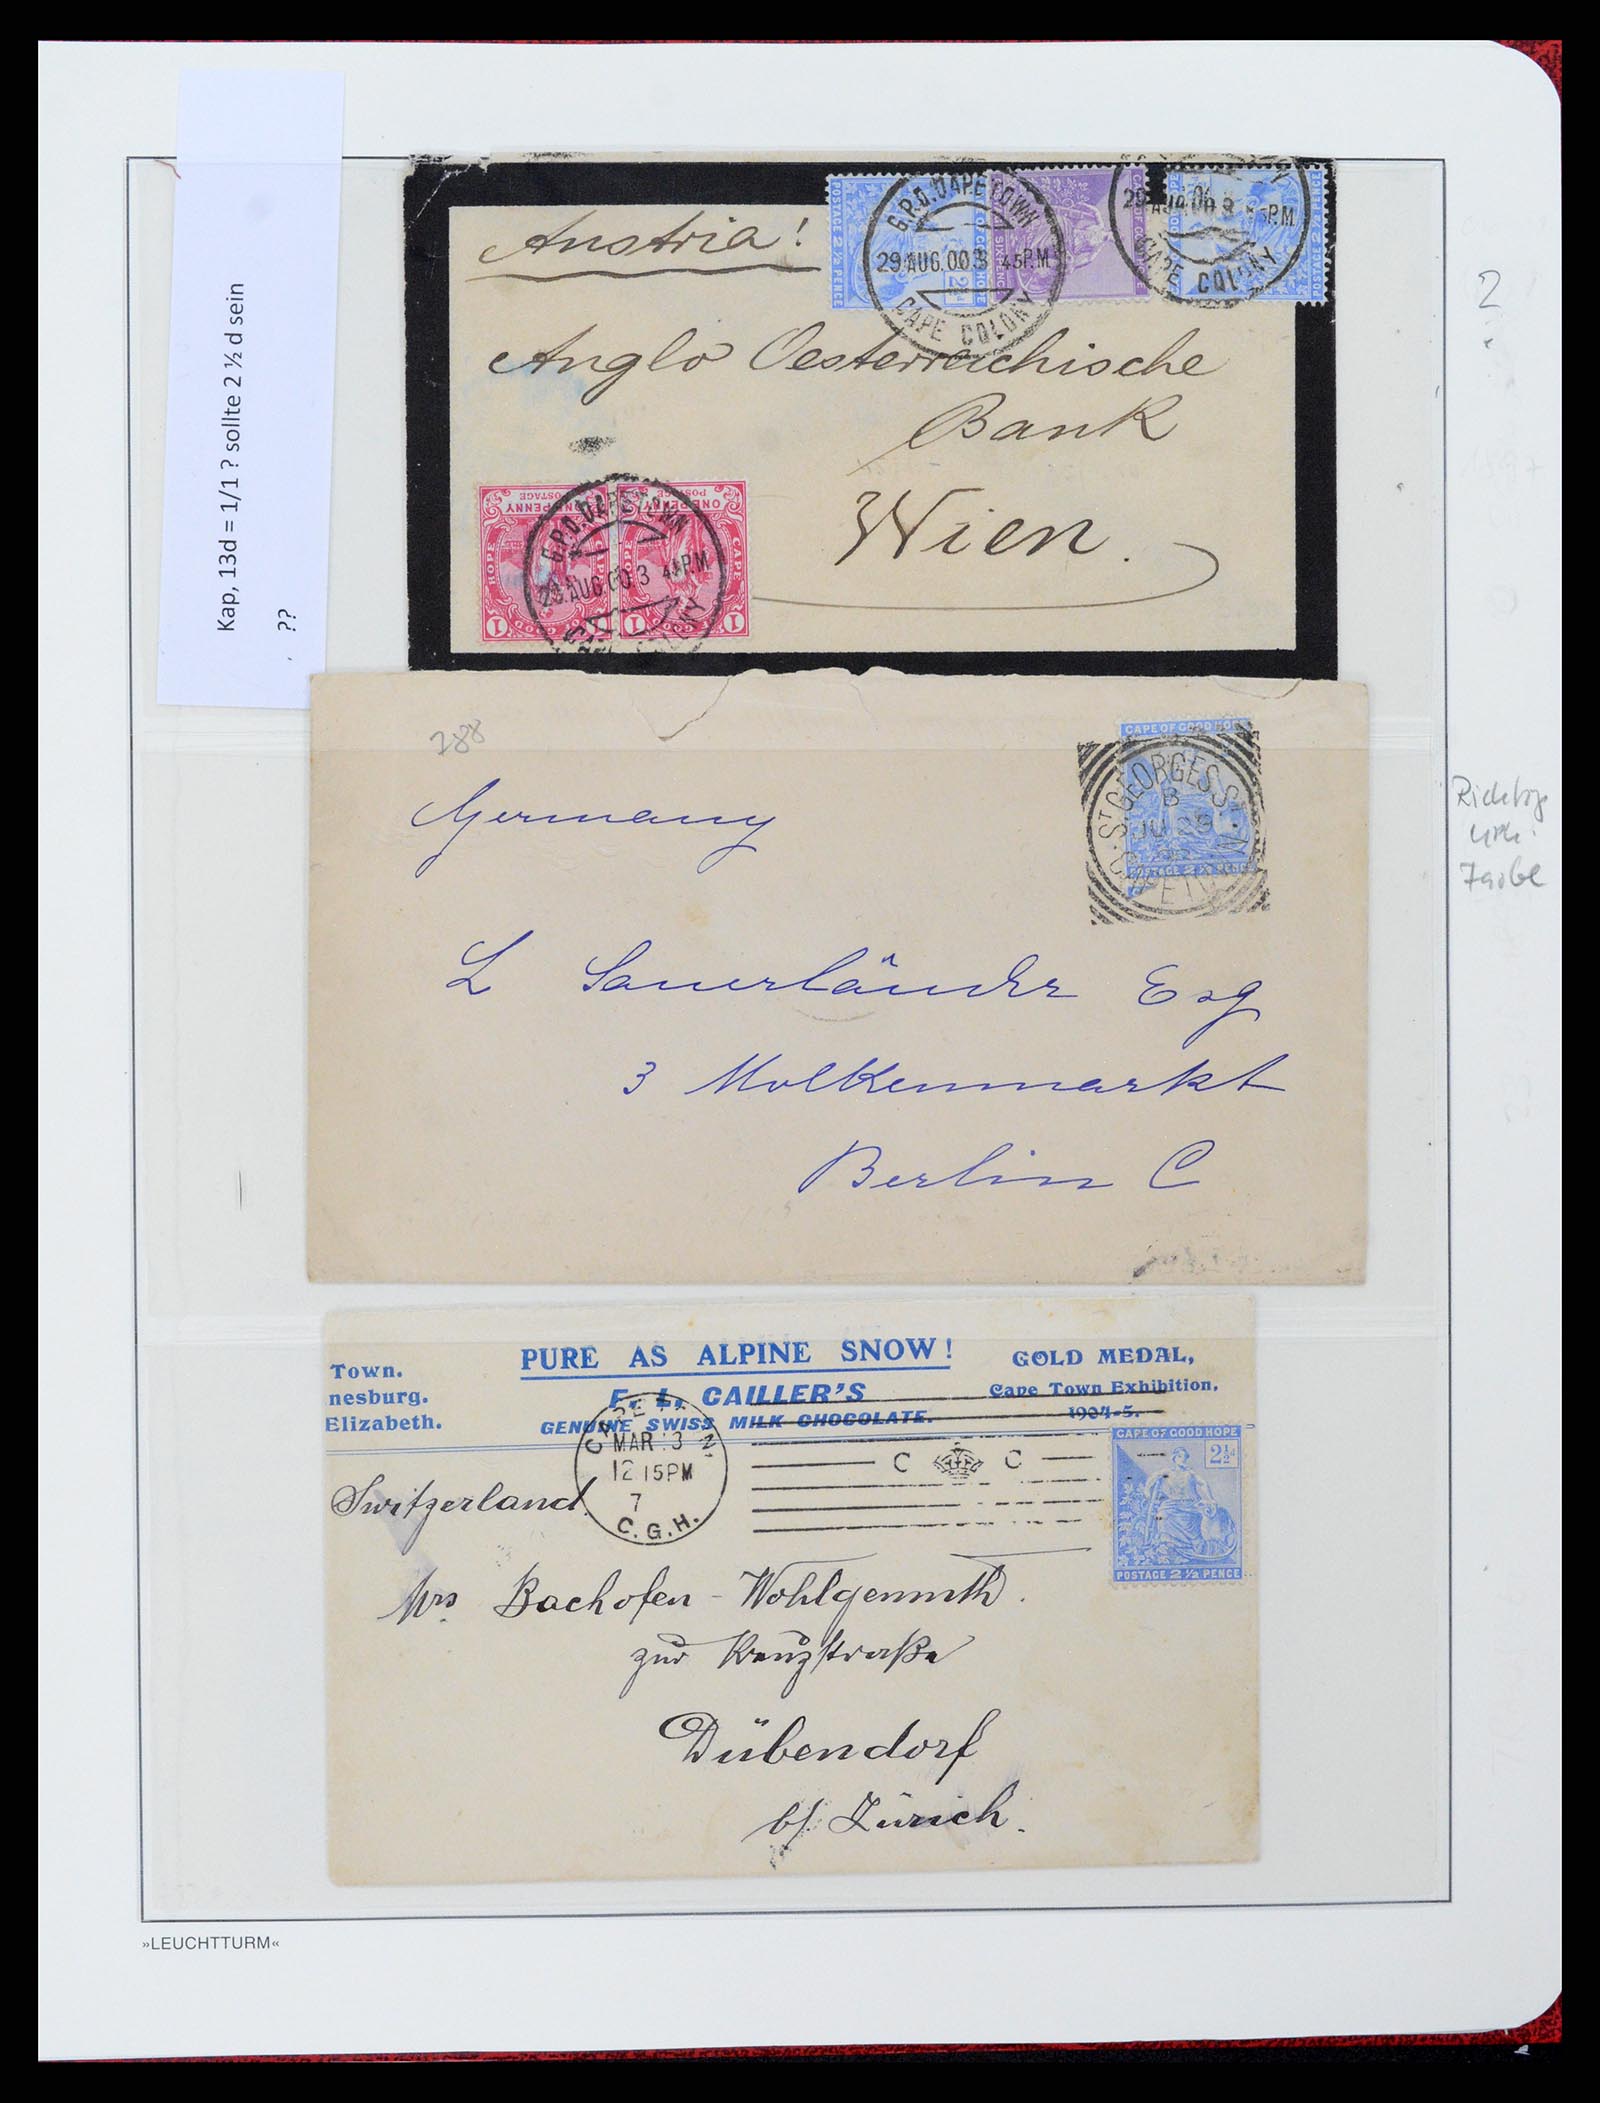 Kap, 13d = 1/1 ? sollte 2 ½ d sein
??
Austria!
POSTAGE 2½ PENCE
G.P.O. CAPE TOWN
29 AUG.00 3 45 P.M
CAPE COLONY
29 AUG 00 3 45 P.M
CAPE COLONY
Anglo Oesterreichische
Bank
Wien.
ONE PENNY
POSTAGE
G.P.O. CAPE TOWN
29.AUG.00.3 45 P.M
CAPE COLONY
2
288
Germany
CAPE OF GOOD HOPE
ST GEORGES ST
B
JU 29
CAPETOWN
POSTAGE 2½ PENCE
L Sauerländer Esq
3 Molkenmarkt
Berlin C
Farbe
Town.
nesburg.
Elizabeth.
PURE AS ALPINE SNOW!
F. L. CAILLER'S
GENUINE SWISS MILK CHOCOLATE.
GOLD MEDAL,
Cape Town Exhibition,
1904-5.
CAPE TOWN
MAR 13
12 15PM
7
C.G.H.
C C
CAPE OF GOOD HOPE
2½d
POSTAGE 2½ PENCE
Switzerland.
Mrs Bachofen-Wohlgemuth.
zur Kreuzstraße
Dübendorf
b/ Zürich.
»LEUCHTTURM«